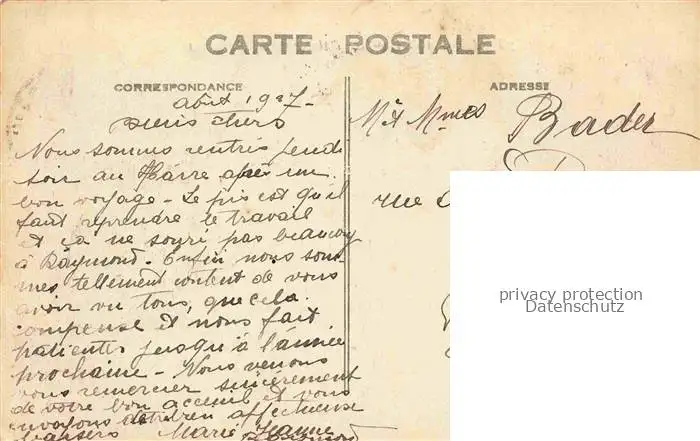 CARTE POSTALE
CORRESPONDANCE
ADRESSE
août 1927-
biens chers
Mr & Mmes Bader
rue
Nous sommes rentrés jeudi
soir au Hâvre après un
bon voyage - Le pis est qu'il
faut reprendre le travail
et ça ne souri pas beaucoup
à Raymond. Enfin nous som-
mes tellement content de vous
avoir vu tous, que cela
compense et nous fait
patienter jusqu'à l'année
prochaine - Nous venons
vous remercier sincèrement
de votre bon acceuil et vous
envoyons de bien affectueuse
baisers Marie Jeanne
Raymond
privacy protection
Datenschutz